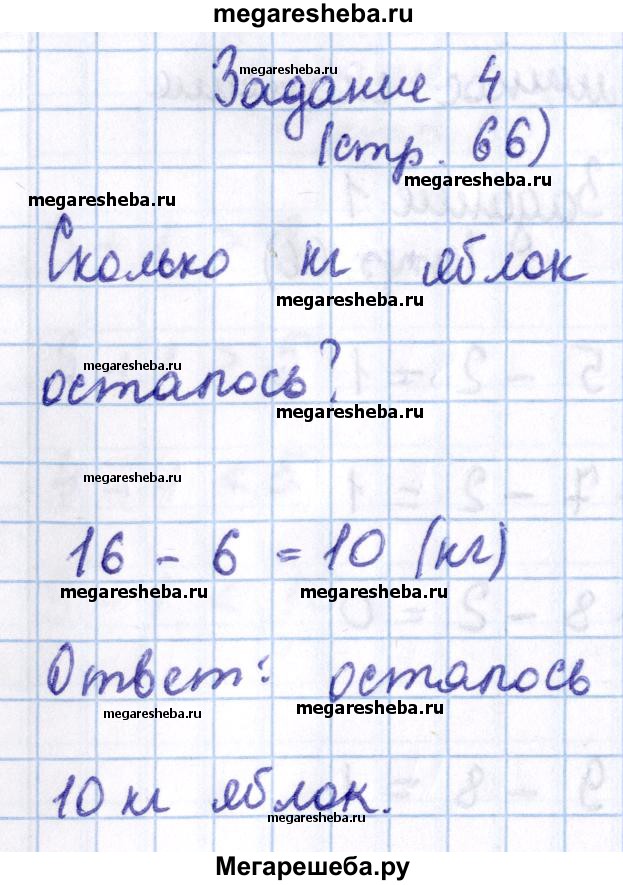 megaresheba.ru
megaresheba.ru
Задание 4
(стр. 66)
megaresheba.ru
megaresheba.ru
Сколько кг яблок
megaresheba.ru
megaresheba.ru
осталось?
megaresheba.ru
megaresheba.ru
16 - 6 = 10 (кг)
megaresheba.ru
megaresheba.ru
Ответ: осталось
megaresheba.ru
megaresheba.ru
10 кг яблок.
megaresheba.ru
Мегарешеба.ру